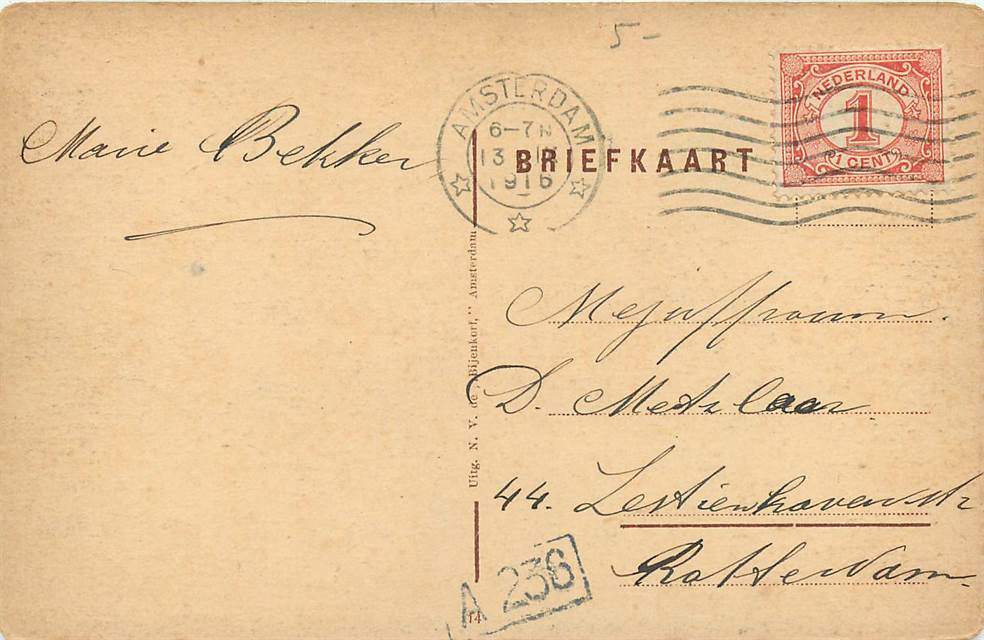 5-
AMSTERDAM
6-7N
13
1916
NEDERLAND
1
1 CENT
Marie Bekker
BRIEFKAART
Mejuffrouw.
D. Metzlaar
44. Zestienhovenstr
Rotterdam
Uitg. N. V. de „Bijenkorf," Amsterdam
A 236
14